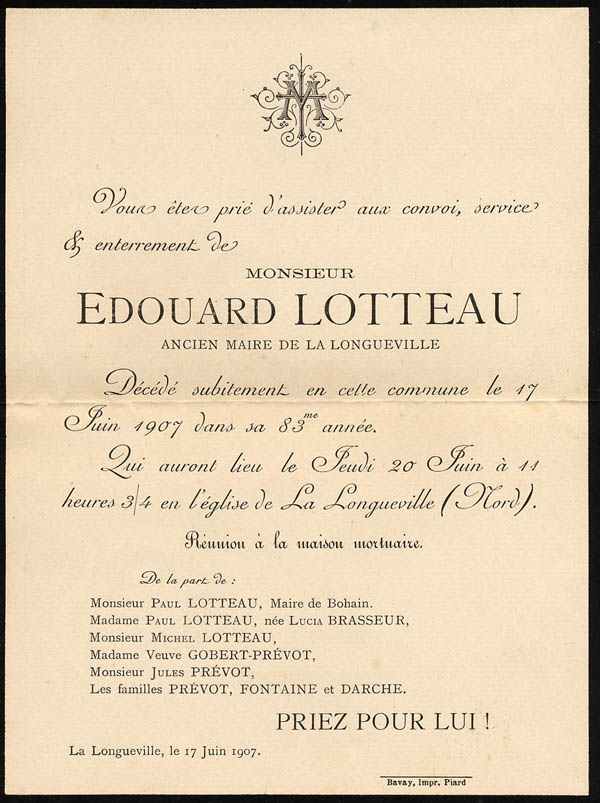 Vous êtes prié d'assister aux convoi, service
& enterrement de
MONSIEUR
EDOUARD LOTTEAU
ANCIEN MAIRE DE LA LONGUEVILLE
Décédé subitement en cette commune le 17
Juin 1907 dans sa 83me année.
Qui auront lieu le Jeudi 20 Juin à 11
heures 3/4 en l'église de La Longueville (Nord).
Réunion à la maison mortuaire.
De la part de :
Monsieur PAUL LOTTEAU, Maire de Bohain.
Madame PAUL LOTTEAU, née LUCIA BRASSEUR,
Monsieur MICHEL LOTTEAU,
Madame Veuve GOBERT-PRÉVOT,
Monsieur JULES PRÉVOT,
Les familles PRÉVOT, FONTAINE et DARCHE.
PRIEZ POUR LUI !
La Longueville, le 17 Juin 1907.
Bavay, Impr. Piard